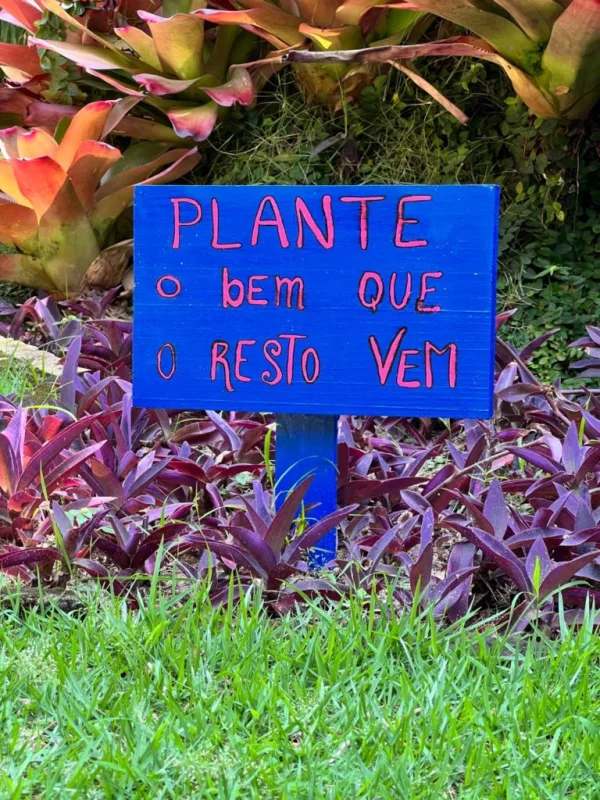 PLANTE
o bEm QUE
O RESTO VEM